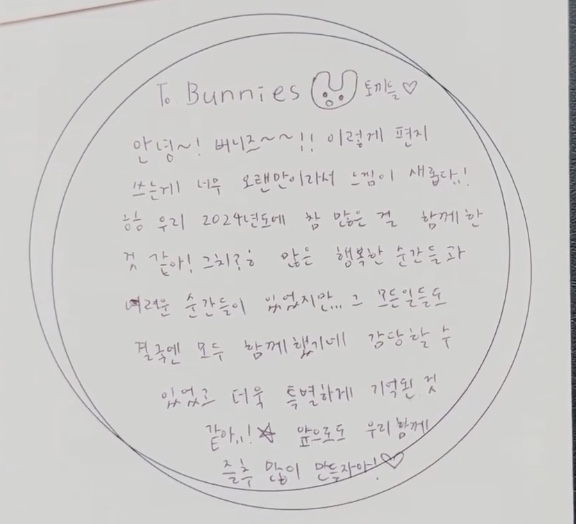 To Bunnies 토끼들♡
안녕~! 버니즈~~!! 이렇게 편지
쓰는게 너무 오랜만이라서 느낌이 새롭다..!
응응 우리 2024년도에 참 많은 걸 함께한
것 같아! 그치?ㅎ 많은 행복한 순간들과
어려운 순간들이 있었지만... 그 모든일들도
결국엔 모두 함께했기에 감당할 수
있었고 더욱 특별하게 기억된 것
같아..!☆ 앞으로도 우리 함께
많이 만들자아!♡